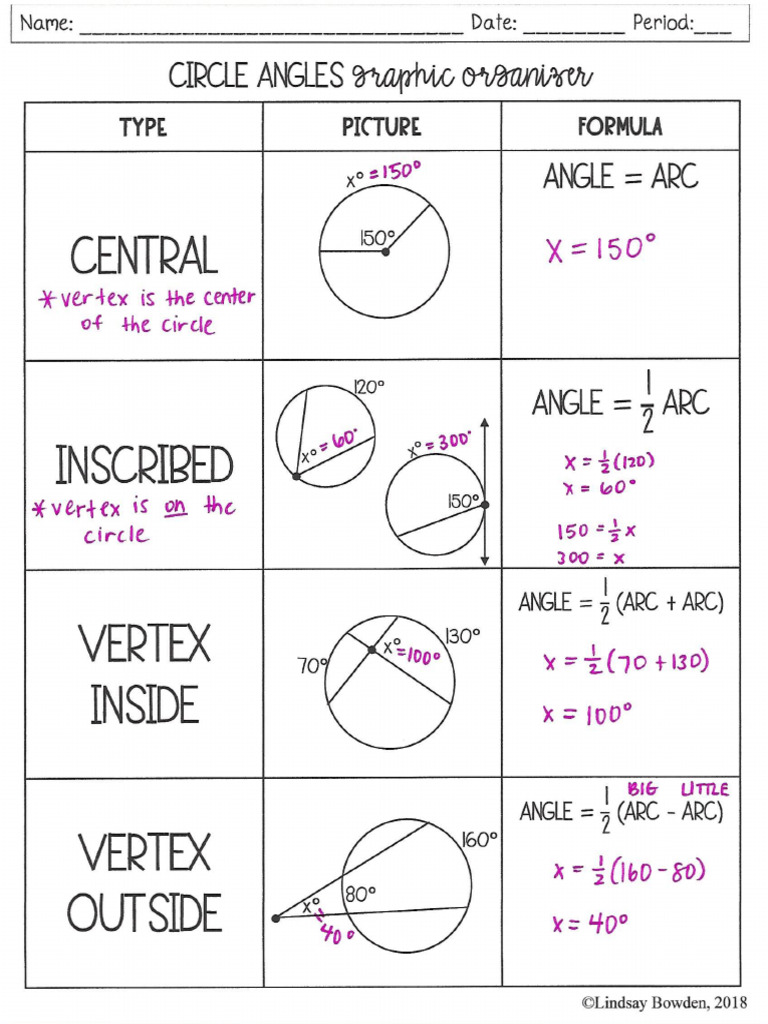 Name: ________________________________ Date: _________ Period:___
CIRCLE ANGLES graphic organizer
TYPE PICTURE FORMULA
CENTRAL
*vertex is the center
of the circle
x° =150°
150°
ANGLE = ARC
x = 150°
INSCRIBED
*vertex is on the
circle
120°
x° = 60°
x° = 300°
150°
ANGLE = 1/2 ARC
x = 1/2 (120)
x = 60°
150 = 1/2 x
300 = x
VERTEX
INSIDE
130°
x° =100°
70°
ANGLE = 1/2 (ARC + ARC)
x = 1/2 (70 + 130)
x = 100°
VERTEX
OUTSIDE
160°
80°
x° = 40°
BIG LITTLE
ANGLE = 1/2 (ARC - ARC)
x = 1/2 (160 - 80)
x = 40°
©Lindsay Bowden, 2018